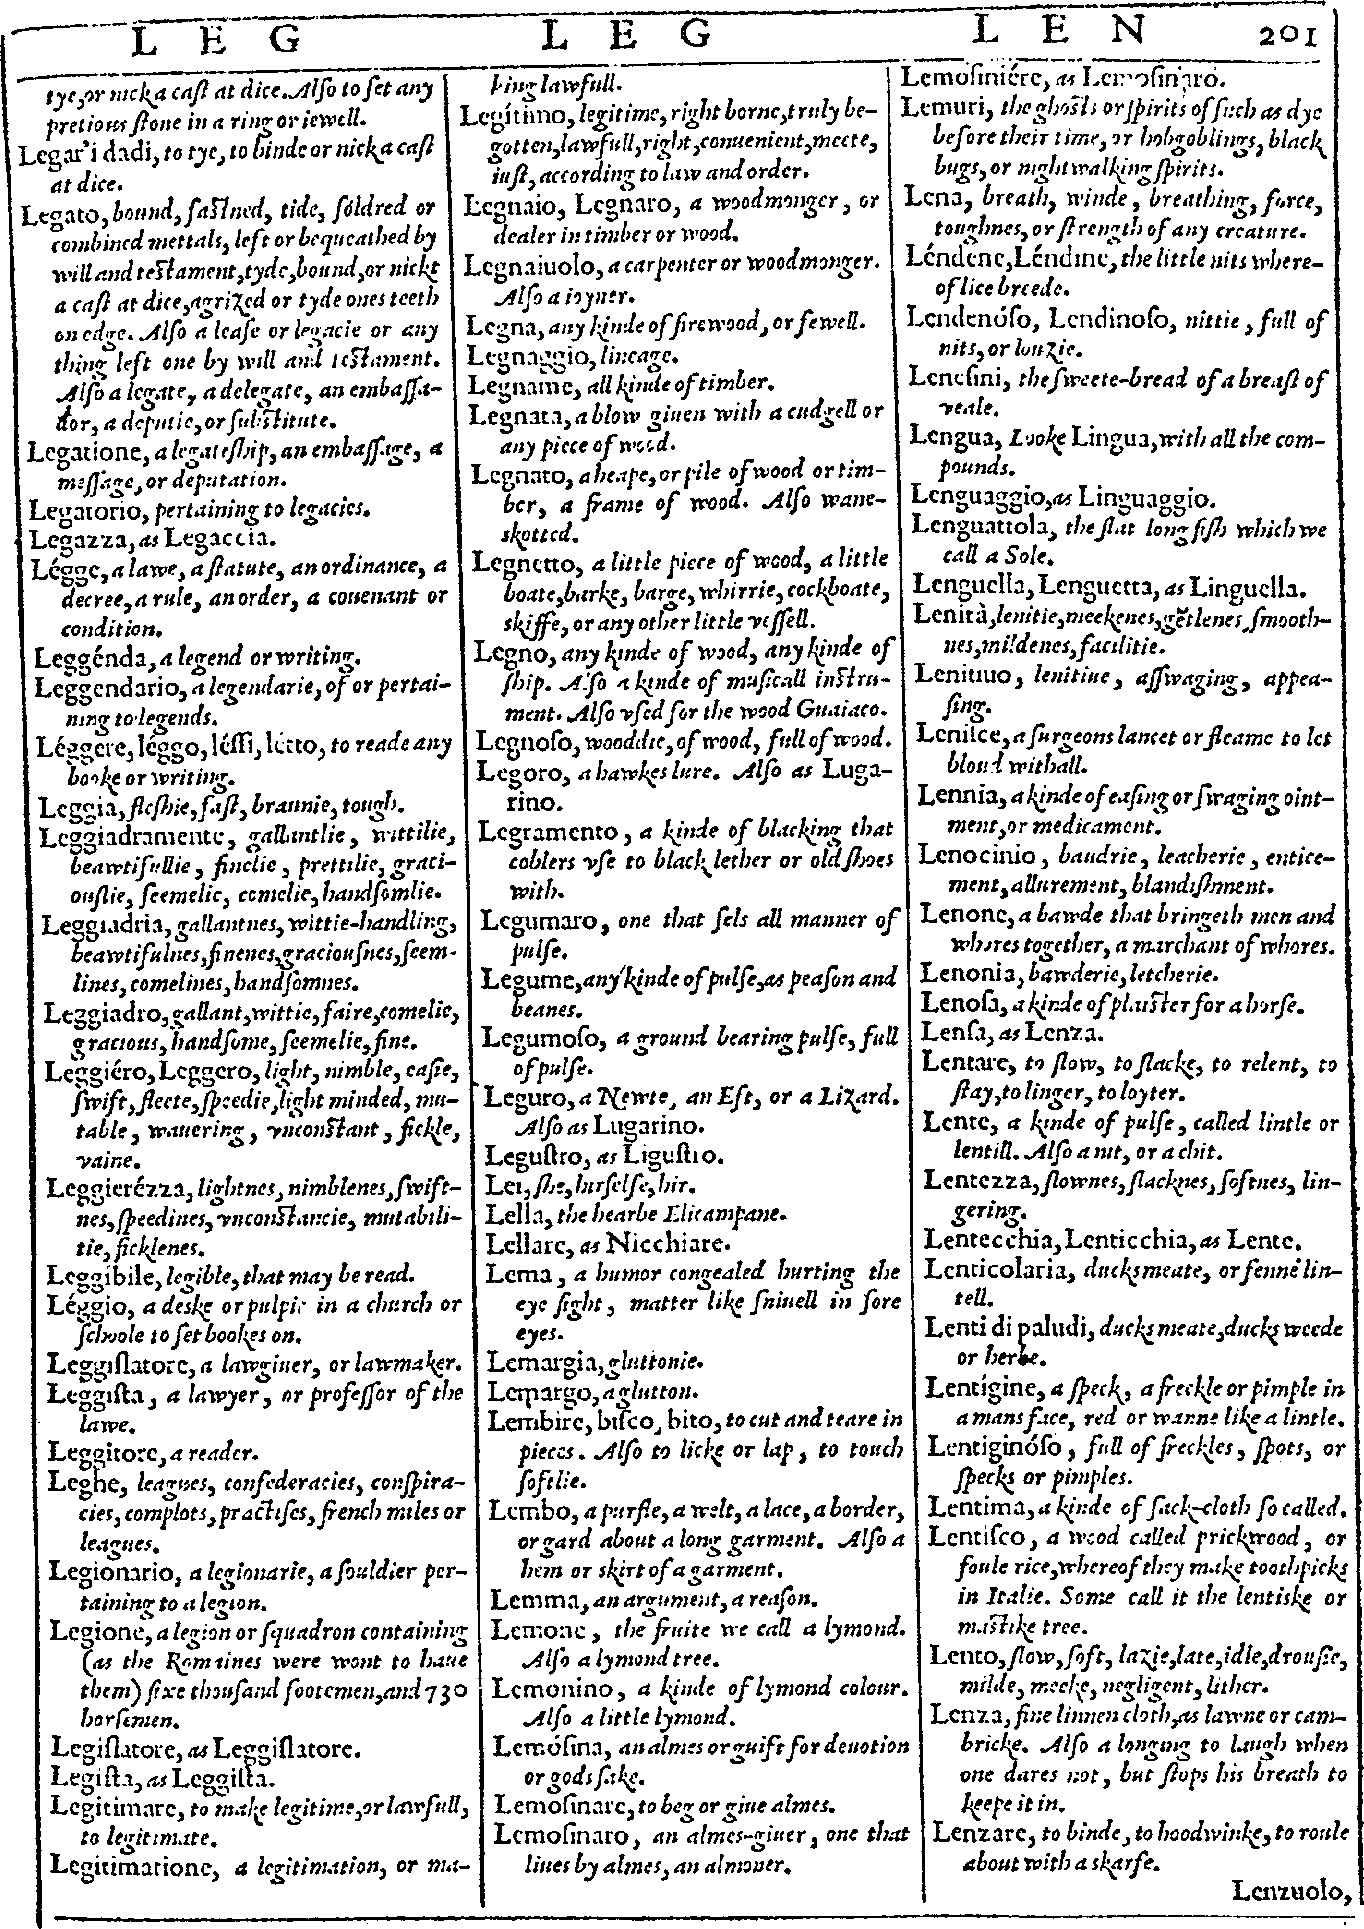 LEG LEG LEN 201
tye, or nicke a cast at dice. Also to set any
pretious stone in a ring or iewell.
Legar'i dadi, to tye, to binde or nicke a cast
at dice.
Legato, bound, fastned, tide, soldred or
combined mettals, left or bequeathed by
will and testament, tyde, bound, or nickt
a cast at dice, agrized or tyde ones teeth
on edge. Also a lease or legacie or any
thing left one by will and testament.
Also a legate, a delegate, an embassa-
dor, a deputie, or substitute.
Legatione, a legateship, an embassage, a
message, or deputation.
Legatorio, pertaining to legacies.
Legazza, as Legaccia.
Légge, a lawe, a statute, an ordinance, a
decree, a rule, an order, a couenant or
condition.
Leggénda, a legend or writing.
Leggendario, a legendarie, of or pertai-
ning to legends.
Léggere, léggo, léssi, létto, to reade any
booke or writing.
Leggia, fleshie, fast, braunie, tough.
Leggiadramente, gallantlie, wittilie,
beawtifullie, finelie, prettilie, graci-
ouslie, seemelie, comelie, handsomlie.
Leggiadria, gallantnes, wittie-handling,
beawtifulnes, finenes, graciousnes, seem-
lines, comelines, handsomnes.
Leggiadro, gallant, wittie, faire, comelie,
gracious, handsome, seemelie, fine.
Leggiéro, Leggero, light, nimble, easie,
swift, fleete, speedie, light minded, mu-
table, wauering, vnconstant, fickle,
vaine.
Leggierézza, lightnes, nimblenes, swift-
nes, speedines, vnconstancie, mutabili-
tie, ficklenes.
Leggíbile, legible, that may be read.
Léggio, a deske or pulpit in a church or
schoole to set bookes on.
Leggislatore, a lawgiuer, or lawmaker.
Leggista, a lawyer, or professor of the
lawe.
Leggitore, a reader.
Leghe, leagues, confederacies, conspira-
cies, complots, practises, french miles or
leagues.
Legionario, a legionarie, a souldier per-
taining to a legion.
Legione, a legion or squadron containing
(as the Romaines were wont to haue
them) sixe thousand footemen, and 730
horsemen.
Legislatore, as Leggislatore.
Legista, as Leggista.
Legitimare, to make legitime, or lawfull,
to legitimate.
Legitimatione, a legitimation, or ma-
king lawfull.
Legítimo, legitime, right borne, truly be-
gotten, lawfull, right, conuenient, meete,
iust, according to law and order.
Legnaio, Legnaro, a woodmonger, or
dealer in timber or wood.
Legnaiuolo, a carpenter or woodmonger.
Also a ioyner.
Legna, any kinde of firewood, or fewell.
Legnaggio, lineage.
Legname, all kinde of timber.
Legnata, a blow giuen with a cudgell or
any piece of wood.
Legnato, a heape, or pile of wood or tim-
ber, a frame of wood. Also wane-
skotted.
Legnetto, a little piece of wood, a little
boate, barke, barge, whirrie, cockboate,
skiffe, or any other little vessell.
Legno, any kinde of wood, any kinde of
ship. Also a kinde of musicall instru-
ment. Also vsed for the wood Guaiaco.
Legnoso, wooddie, of wood, full of wood.
Legoro, a hawkes lure. Also as Luga-
rino.
Legramento, a kinde of blacking that
coblers vse to black lether or old shoes
with.
Legumaro, one that sels all manner of
pulse.
Legume, any kinde of pulse, as peason and
beanes.
Legumoso, a ground bearing pulse, full
of pulse.
Leguro, a Newte, an Eft, or a Lizard.
Also as Lugarino.
Legustro, as Ligustro.
Lei, she, hirselfe, hir.
Lella, the hearbe Elicampane.
Lellare, as Nicchiare.
Lema, a humor congealed hurting the
eye sight, matter like sniuell in sore
eyes.
Lemargia, gluttonie.
Lemargo, a glutton.
Lembire, bisco, bito, to cut and teare in
pieces. Also to licke or lap, to touch
softlie.
Lembo, a purfle, a welt, a lace, a border,
or gard about a long garment. Also a
hem or skirt of a garment.
Lemma, an argument, a reason.
Lemone, the fruite we call a lymond.
Also a lymond tree.
Lemonino, a kinde of lymond colour.
Also a little lymond.
Lemósina, an almes or guift for deuotion
or gods sake.
Lemosinare, to beg or giue almes.
Lemosinaro, an almes-giuer, one that
liues by almes, an almoner.
Lemosiniére, as Lemosinaro.
Lemuri, the ghosts or spirits of such as dye
before their time, or hobgoblings, black
bugs, or night walking spirits.
Lena, breath, winde, breathing, force,
toughnes, or strength of any creature.
Léndene, Léndine, the little nits where-
of lice breede.
Lendenóso, Lendinoso, nittie, full of
nits, or louzie.
Lenesini, the sweete-bread of a breast of
veale.
Lengua, Looke Lingua, with all the com-
pounds.
Lenguaggio, as Linguaggio.
Lenguattola, the flat long fish which we
call a Sole.
Lenguella, Lenguetta, as Linguella.
Lenità, lenitie, meekenes, gẽtlenes, smooth-
nes, mildenes, facilitie.
Lenitiuo, lenitiue, asswaging, appea-
sing.
Lenitce, a surgeons lancet or fleame to let
bloud withall.
Lennia, a kinde of easing or swaging oint-
ment, or medicament.
Lenocinio, baudrie, leacherie, entice-
ment, allurement, blandishment.
Lenone, a bawde that bringeth men and
whores together, a marchant of whores.
Lenonia, bawderie, letcherie.
Lenosa, a kinde of plaister for a horse.
Lensa, as Lenza.
Lentare, to slow, to slacke, to relent, to
stay, to linger, to loyter.
Lente, a kinde of pulse, called lintle or
lentill. Also a nit, or a chit.
Lentezza, slownes, slacknes, softnes, lin-
gering.
Lentecchia, Lenticchia, as Lente.
Lenticolaria, ducksmeate, or fenne lin-
tell.
Lenti di paludi, ducks meate, ducks weede
or herbe.
Lentígine, a speck, a freckle or pimple in
a mans face, red or wanne like a lintle.
Lentiginóso, full of freckles, spots, or
specks or pimples.
Lentima, a kinde of sack-cloth so called.
Lentisco, a wood called prickwood, or
foule rice, whereof they make toothpicks
in Italie. Some call it the lentiske or
mastike tree.
Lento, slow, soft, lazie, late, idle, drousie,
milde, meeke, negligent, lither.
Lenza, fine linnen cloth, as lawne or cam-
bricke. Also a longing to laugh when
one dares not, but stops his breath to
keepe it in.
Lenzare, to binde, to hoodwinke, to roule
about with a skarfe.
Lenzuolo,